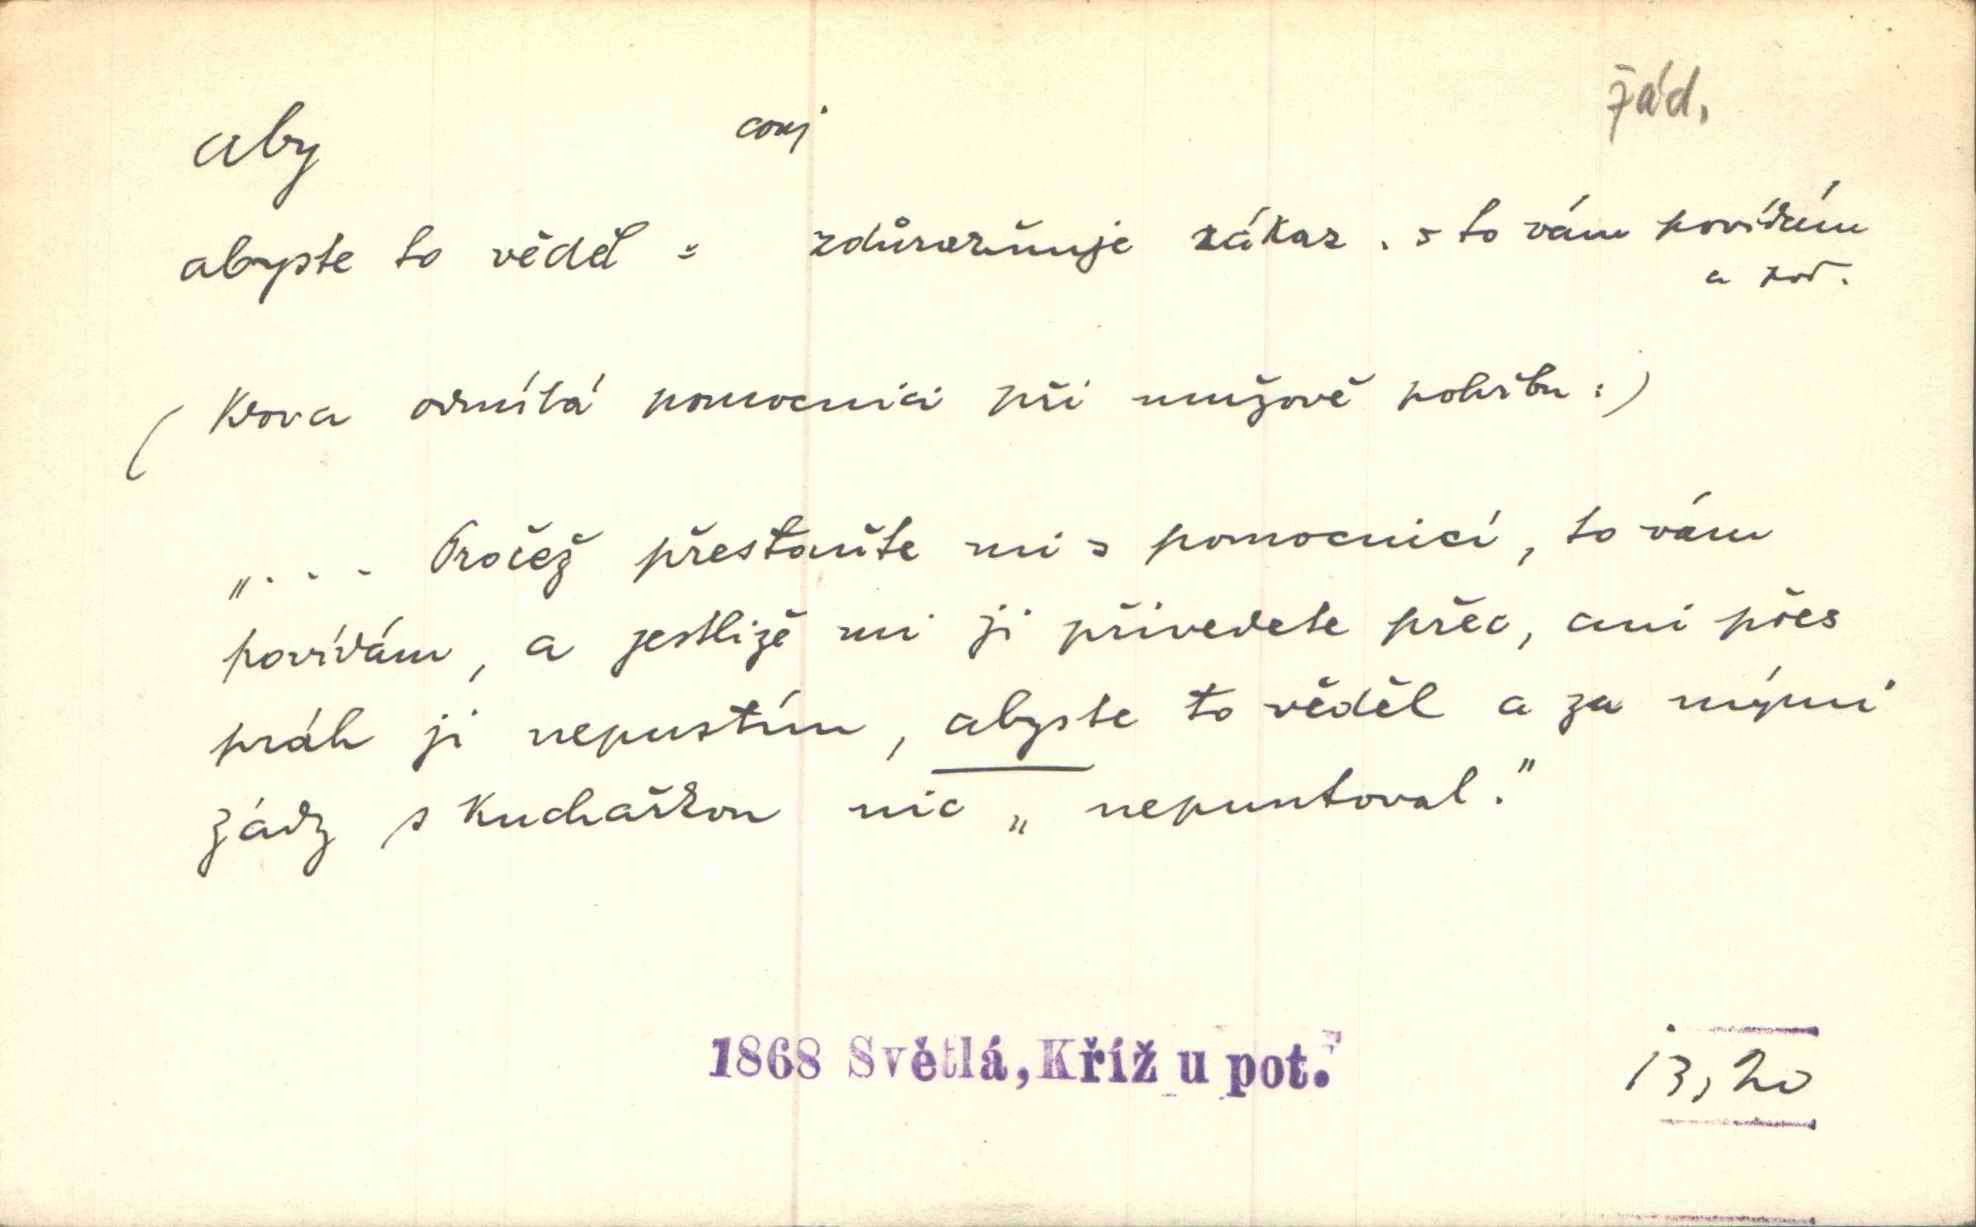 aby conj žád.
abyste to věděl = zdůrazňuje zákaz. = to vám povídám
a pod.
(Vdova odmítá pomocnici při mužově pohřbu:)
„... Pročež přestaňte mi s pomocnicí, to vám
povídám, a jestliže mi ji přivedete přec, ani přes
práh ji nepustím, abyste to věděl a za mými
zády s kuchařkou nic „nepuntoval."
1868 Světlá, Kříž u pot.
13, 20